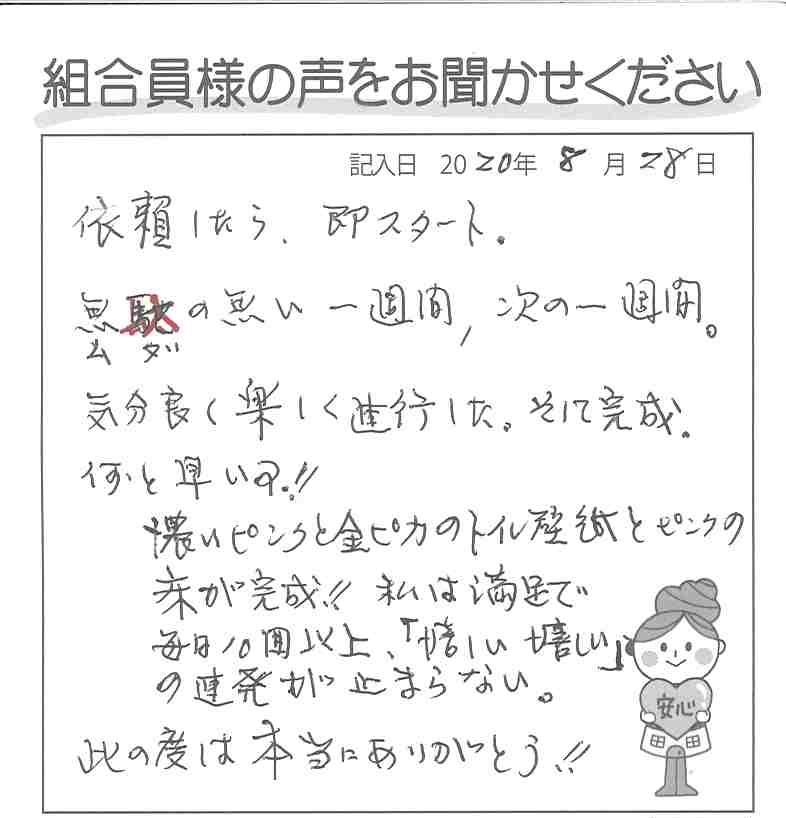 組合員様の声をお聞かせください
記入日 2020年 8月 28日
依頼したら、即スタート。
無駄の無い一週間,次の一週間。
ムダ
気分良く楽しく進行した。そして完成。
何と早い事!!
濃いピンクと金ピカのトイレ壁紙とピンクの
床が完成!! 私は満足で
毎日10回以上、「嬉しい嬉しい」
の連発が止まらない。
此の度は本当にありがとう!!
安心